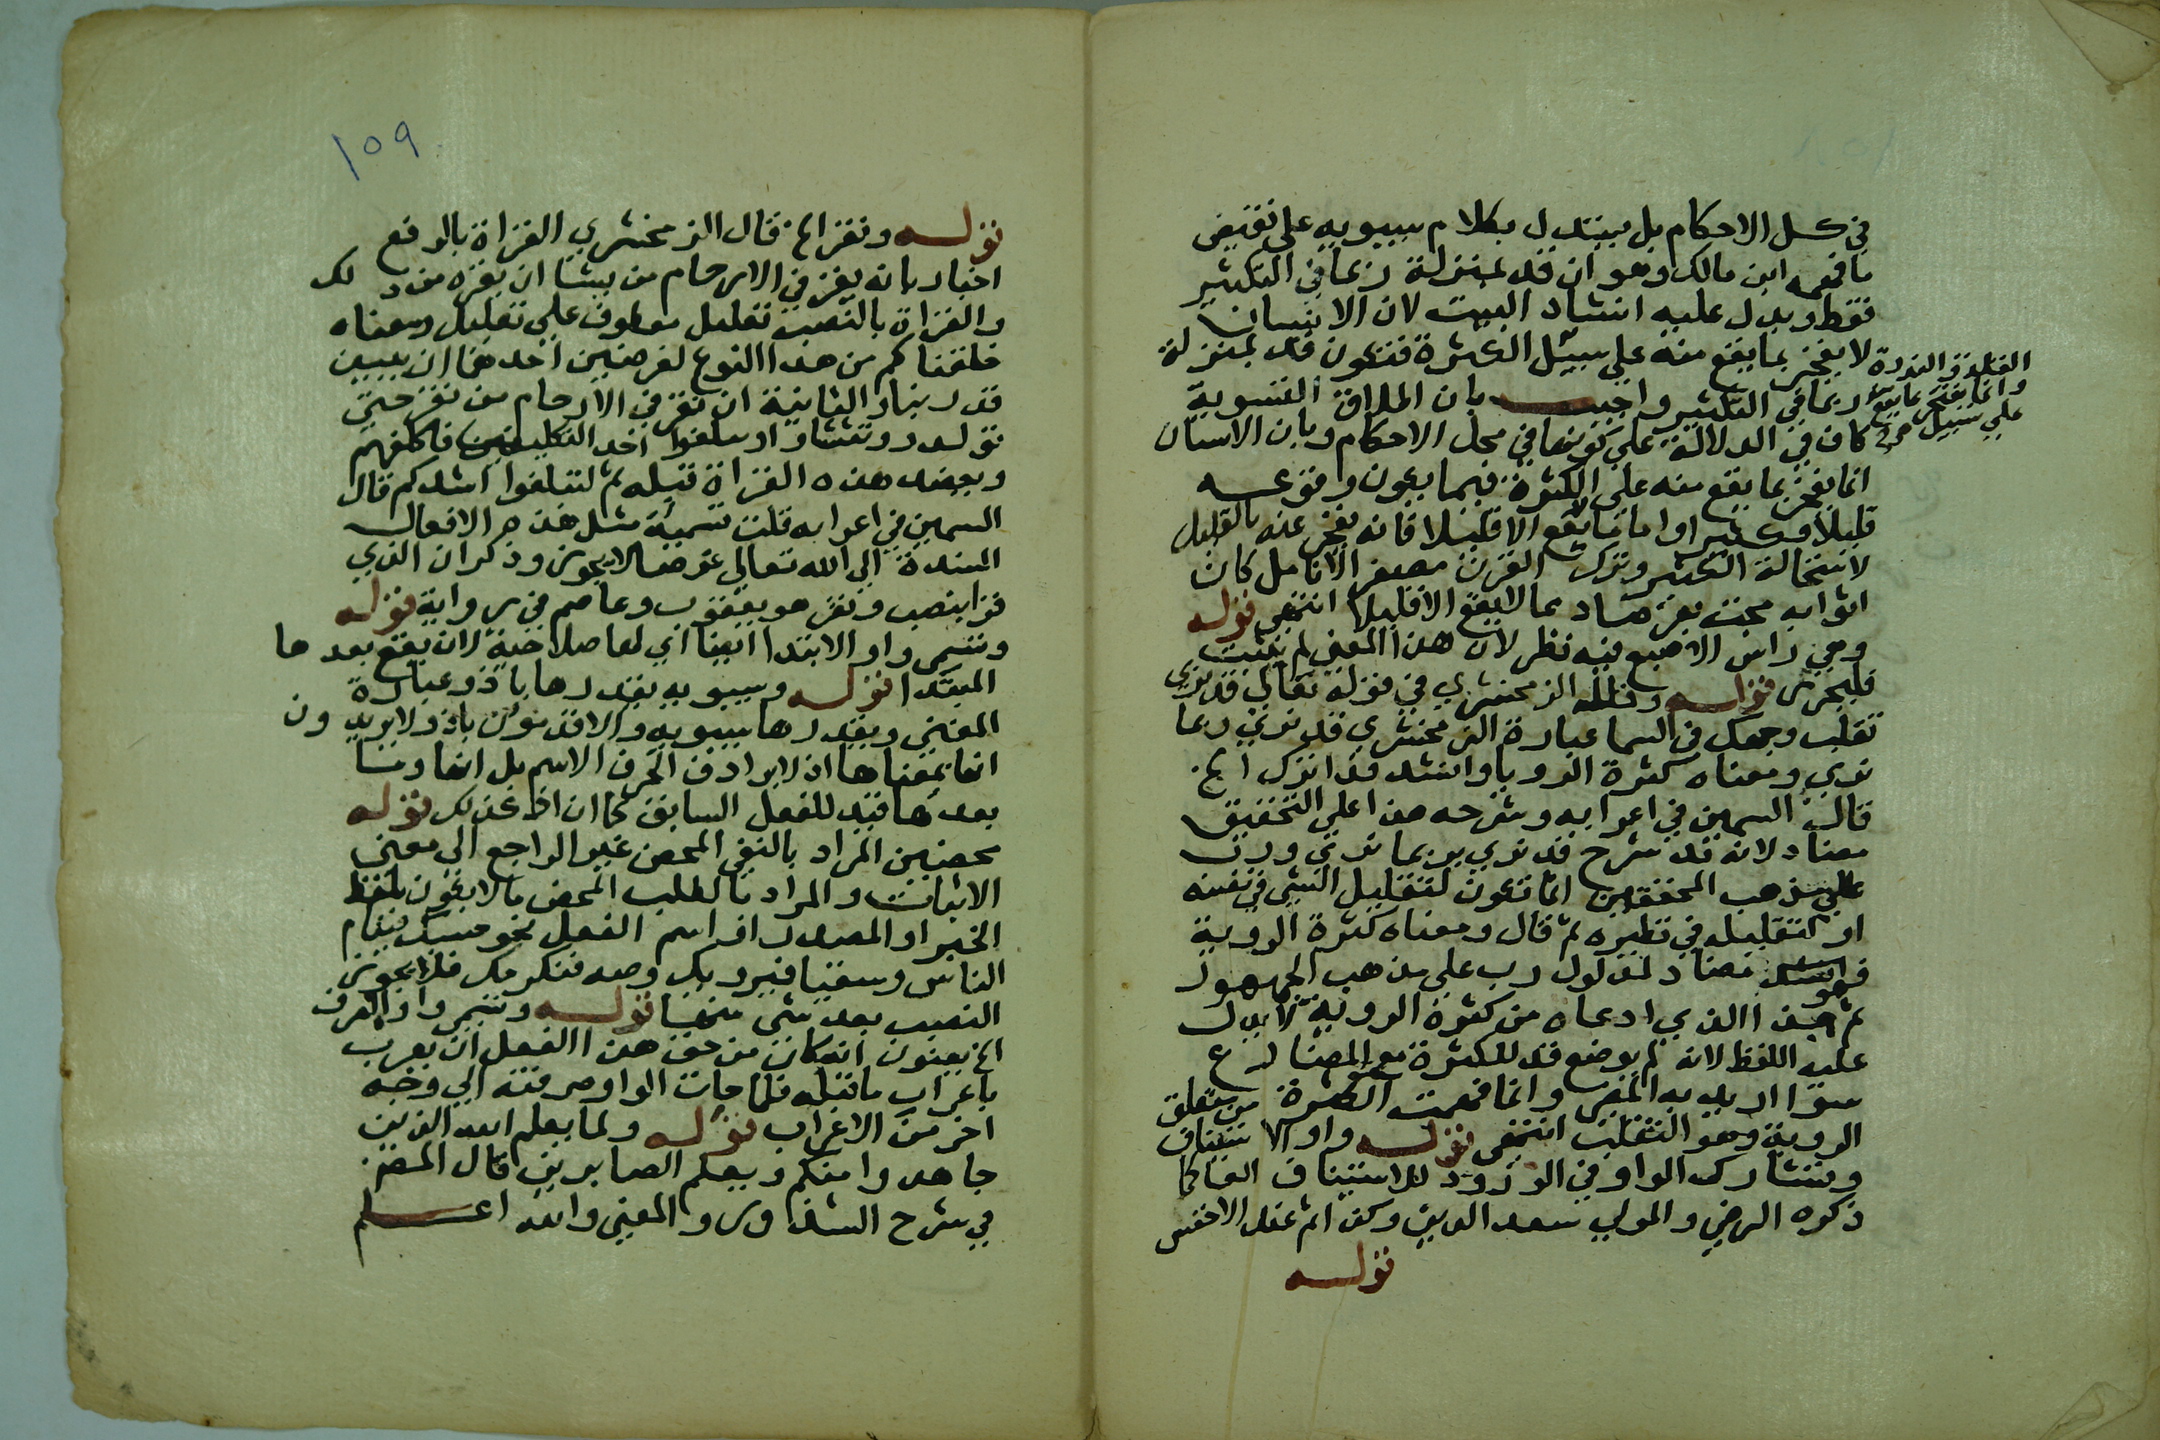 في كل الاحكام بل يستدل بكلام سيبويه على نقيض
ما فهمه ابن مالك وهو ان قد بمنزلة ربما في التكثير
فقط ويدل عليه انشاد البيت لان الانسان
لا يفخر بما يقع منه على سبيل الكثرة فتكون قد بمنزلة
القلة والندرة
وانما يفتخر بما يقع
على سبيل
ربما في التكثير واجيب بان اطلاق التسوية
كاف في الدلالة على كونها في كل الاحكام وبان الانسان
انما يفخر بما يقع منه على الكثرة فيما يكون وقوعه
قليلا وكثيرا واما ما لا يقع الا قليلا فانه يفخر منه بالقليل
لاستحالة الكثير وترك القرن مصفر الانامل كان
اثوابه مجت بفرصاد مما لا يقع الا قليلا انتهى قوله
وهي راس الاصبع فيه نظر لان هذا المعنى لم يثبت
فليحرر قوله وقال الزمخشري في قوله تعالى قد نرى
تقلب وجهك في السما عبارة الزمخشري قد نرى ربما
نرى ومعناه كثرة الرويا وانشد قد اترك الخ
قال السمين في اعرابه وشرحه هذا على التحقيق
مضاد لانه قد شرح قد نرى بربما نرى ورب
على مذهب المحققين انما تكون لتقليل الشي في نفسه
او لتقليله في نظيره ثم قال ومعناه كثرة الروية
فهو مضاد لمدلول رب على مذهب الجمهور
ثم هذا الذي ادعاه من كثرة الروية لا يدل
عليه اللفظ لانه لم يوضع قد للكثرة مع المضارع
سوا اريد به المضي وانما فهمت الكثرة من متعلق
الروية وهو التقلب انتهى قوله واو الاستيناف
وتشارك الواو في الورود للاستيناف الفا كما
ذكره الرضي والمولى سعد الدين وكذا ثم عند الاخفش
قوله
١٥٩
قوله ونقر الخ قال الزمخشري القراة بالرفع
اخبار بانه يقر في الارحام من يشا ان يقره من ذلك
والقراة بالنصب تعليل معطوف على تعليل ومعناه
خلقناكم من هذا النوع لغرضين احدهما ان يبين
قدرتنا والثانية ان نقر في الارحام من نقر حتى
تولدوا وتنشاوا وتبلغوا احد التكليف فاكلفهم
ويعضد هذه القراة قبله ثم لتبلغوا اشدكم قال
السمين في اعرابه قلت تسمية مثل هذه الافعال
المسندة الى الله تعالى غرضا لا يجوز وذكر ان الذي
قرا بنصب ونقر هو يعقوب وعاصم في رواية قوله
وتسمى واو الابتدا ايضا اي لها صلاحية لان يقع بعدها
المبتدا قوله وسيبويه يقدرها باذ وعبارة
المغني ويقدرها سيبويه والاقدمون باذ ولا يريدون
انها بمعناها اذ لا يرادف الحرف الاسم بل انها وما
بعدها قيد للفعل السابق كما ان اذ كذلك قوله
محضين المراد بالنفي المحض غير الراجع الى معنى
الاثبات والمراد بالطلب المحض ما لا يكون بلفظ
الخبر او المصدر او اسم الفعل نحو حسبك فينام
الناس وسقيا فيرويك وصه فنكرمك فلا يجوز
النصب بعد شي منها قوله وتسمى واو الصرف
الخ يعنون انه كان من حق هذا الفعل ان يعرب
باعراب ما قبله فلما جات الواو صرفته الى وجه
اخر من الاعراب قوله ولما يعلم الله الذين
جاهدوا منكم ويعلم الصابرين قال المص
في شرح الشذور والمعنى والله اعلم